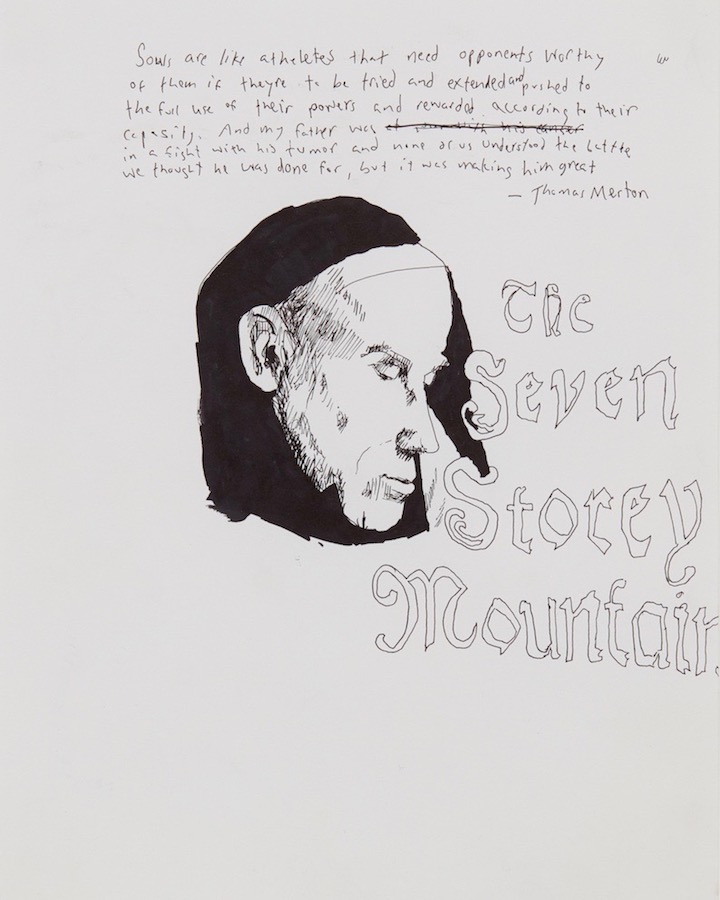 Souls are like atheletes that need opponents worthy
of them if theyre to be tried and extended and pushed to
the full use of their powers and rewarded according to their
capasity. And my father was
in a fight with his tumor and none of us understood the battle
we thought he was done for, but it was making him great
— Thomas Merton
The
Seven
Storey
Mountain